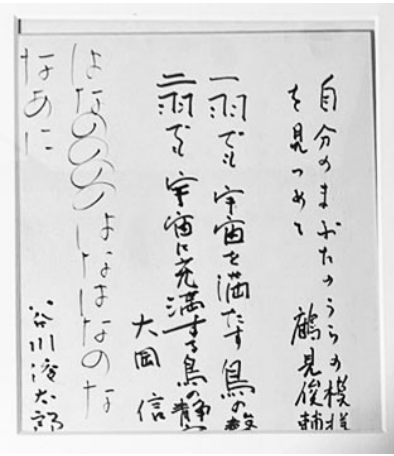 自分のまぶたのうらの模様
を見つめて 鶴見俊輔
一羽でも 宇宙を満たす 鳥の
二羽でも 宇宙に充満する鳥の静
大岡 信
はなのののの はなはなのな
なあに
谷川俊太郎